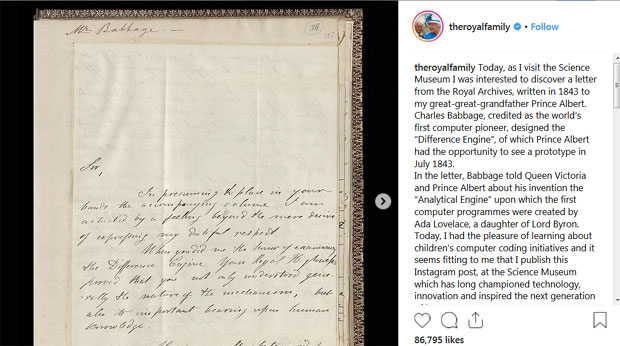 Mr Babbage. —
Sir,
In presuming to place in your
hands the accompanying volume I am
actuated by a feeling beyond the mere desire
of expressing my dutiful respect
When you did me the honor of examining
the Difference Engine Your Royal Highness
proved that you not only understood gene-
rally the nature of the mechanism, but
also its important bearing upon human
knowledge.
theroyalfamily • Follow
theroyalfamily Today, as I visit the Science
Museum I was interested to discover a letter
from the Royal Archives, written in 1843 to
my great-great-grandfather Prince Albert.
Charles Babbage, credited as the world's
first computer pioneer, designed the
"Difference Engine", of which Prince Albert
had the opportunity to see a prototype in
July 1843.
In the letter, Babbage told Queen Victoria
and Prince Albert about his invention the
"Analytical Engine" upon which the first
computer programmes were created by
Ada Lovelace, a daughter of Lord Byron.
Today, I had the pleasure of learning about
children's computer coding initiatives and it
seems fitting to me that I publish this
Instagram post, at the Science Museum
which has long championed technology,
innovation and inspired the next generation
86,795 likes